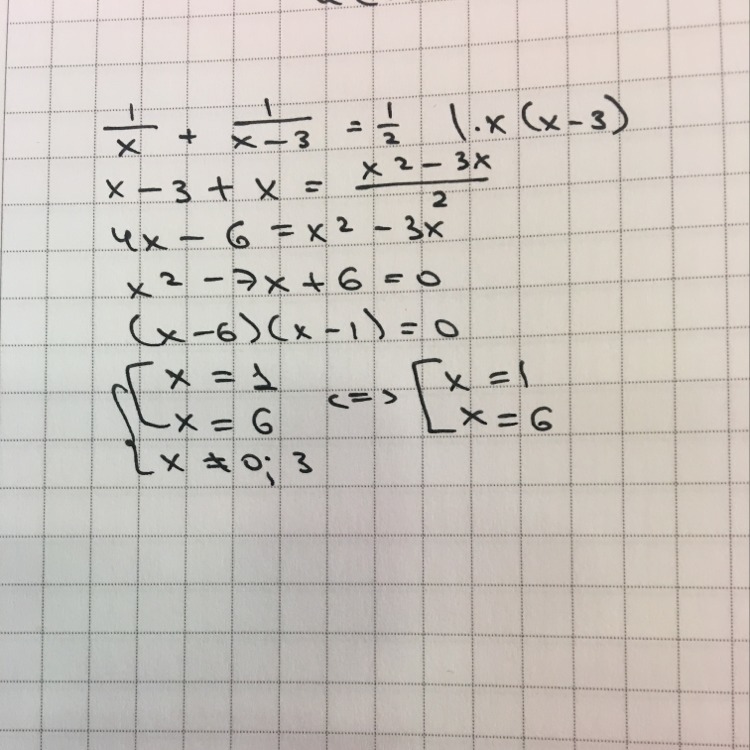 1/x + 1/(x-3) = 1/2 |·x(x-3)
x - 3 + x = (x² - 3x)/2
4x - 6 = x² - 3x
x² - 7x + 6 = 0
(x-6)(x-1) = 0
{[x = 1 <=> [x = 1
x = 6 x = 6
x ≠ 0; 3